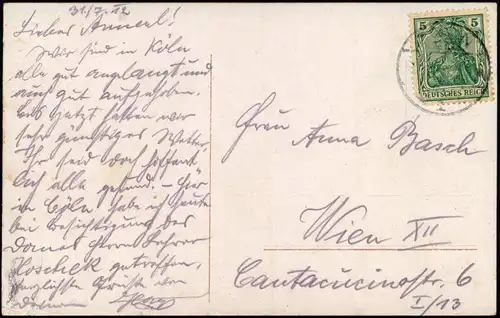 31/7. 12
Liebes Annerl!
Wir sind in Köln
alle gut angelangt und
auch gut aufgehoben.
Bis jetzt hatten wir
sehr günstiges Wetter.
Ihr seid doch hoffent
lich alle gesund. – Hier
in Cöln habe ich heute
bei Besichtigung des
Domes Herrn Lehrer
Hoschek getroffen.
Herzlichste Grüße von
5 5
DEUTSCHES REICH
Frau Anna Basch
Wien XII
Cantacucinostr. 6
I/13